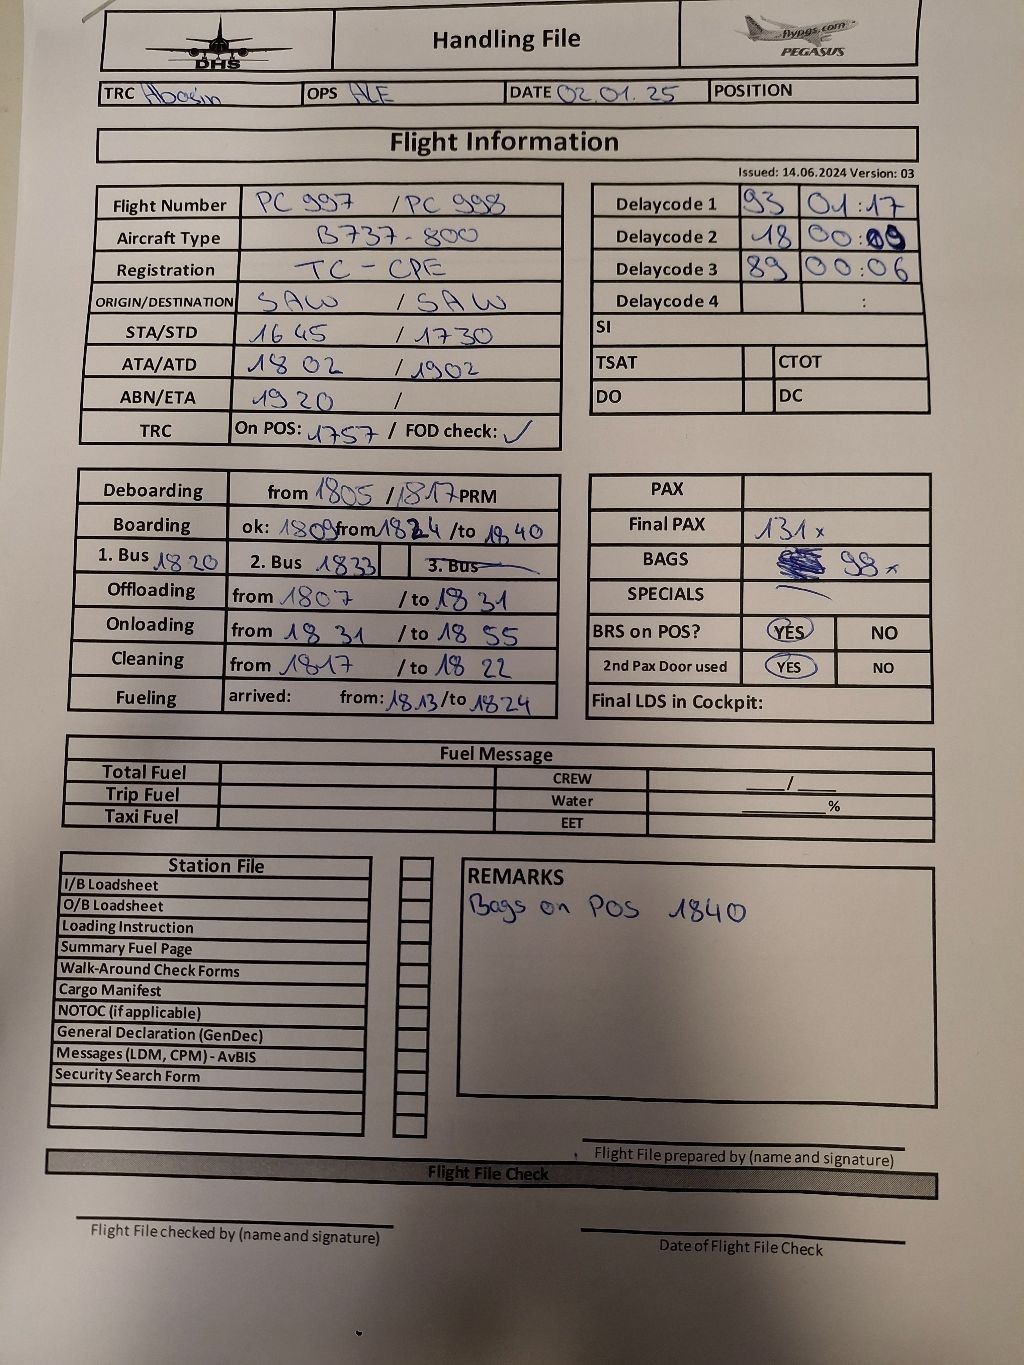 DHS
Handling File
flypgs.com
PEGASUS
TRC Abasin OPS ALE DATE 02.01.25 POSITION
Flight Information
Issued: 14.06.2024 Version: 03
Flight Number PC 997 / PC 998
Aircraft Type B737-800
Registration TC-CPE
ORIGIN/DESTINATION SAW / SAW
STA/STD 1645 / 1730
ATA/ATD 1802 / 1902
ABN/ETA 1920 /
TRC On POS: 1757 / FOD check: ✓
Delaycode 1 93 01:17
Delaycode 2 18 00:09
Delaycode 3 89 00:06
Delaycode 4 :
SI
TSAT CTOT
DO DC
Deboarding from 1805 / 1817 PRM
Boarding ok: 1809 from 1824 /to 1840
1. Bus 1820 2. Bus 1833 3. Bus
Offloading from 1807 / to 1831
Onloading from 1831 / to 1855
Cleaning from 1817 / to 1822
Fueling arrived: from: 1813 /to 1824
PAX
Final PAX 131x
BAGS 98x
SPECIALS
BRS on POS? YES NO
2nd Pax Door used YES NO
Final LDS in Cockpit:
Fuel Message
Total Fuel CREW ____/____
Trip Fuel Water ________%
Taxi Fuel EET
Station File
I/B Loadsheet
O/B Loadsheet
Loading Instruction
Summary Fuel Page
Walk-Around Check Forms
Cargo Manifest
NOTOC (if applicable)
General Declaration (GenDec)
Messages (LDM, CPM) - AvBIS
Security Search Form
REMARKS
Bags on POS 1840
Flight File prepared by (name and signature)
Flight File Check
Flight File checked by (name and signature)
Date of Flight File Check